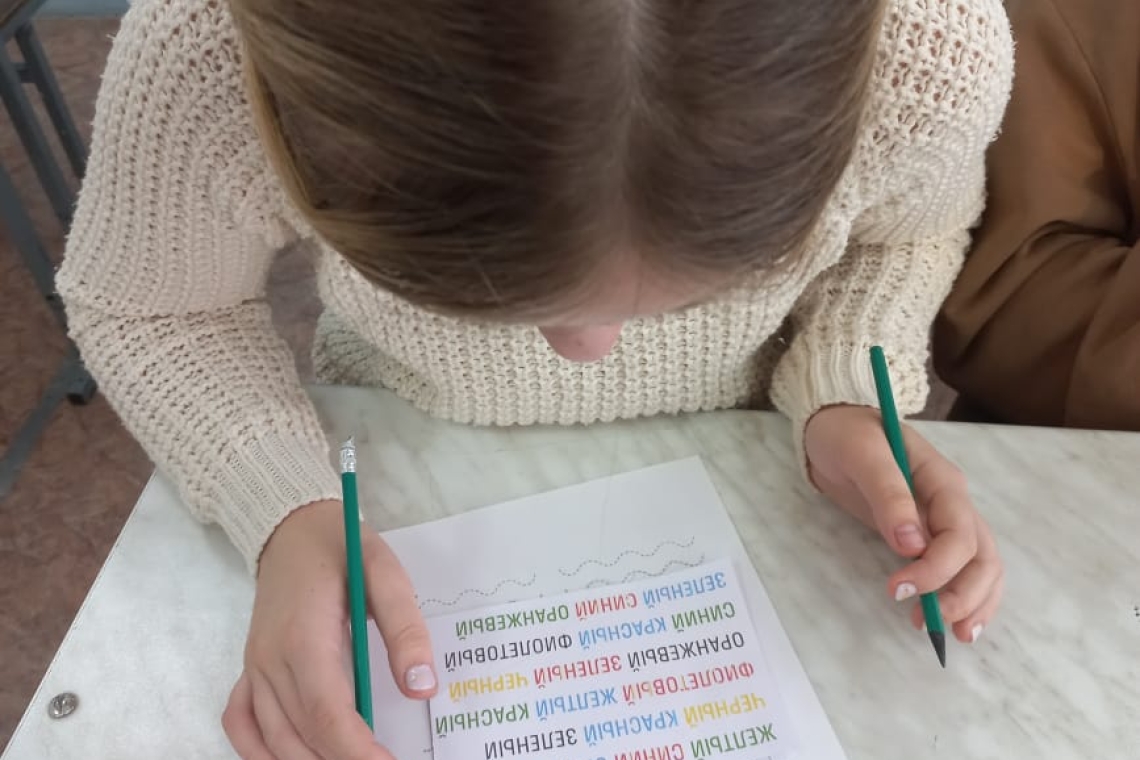 ЖЕЛТЫЙ СИНИЙ
ЧЕРНЫЙ КРАСНЫЙ ЗЕЛЕНЫЙ
ФИОЛЕТОВЫЙ ЖЕЛТЫЙ КРАСНЫЙ
ОРАНЖЕВЫЙ ЗЕЛЕНЫЙ ЧЕРНЫЙ
СИНИЙ КРАСНЫЙ ФИОЛЕТОВЫЙ
ЗЕЛЕНЫЙ СИНИЙ ОРАНЖЕВЫЙ